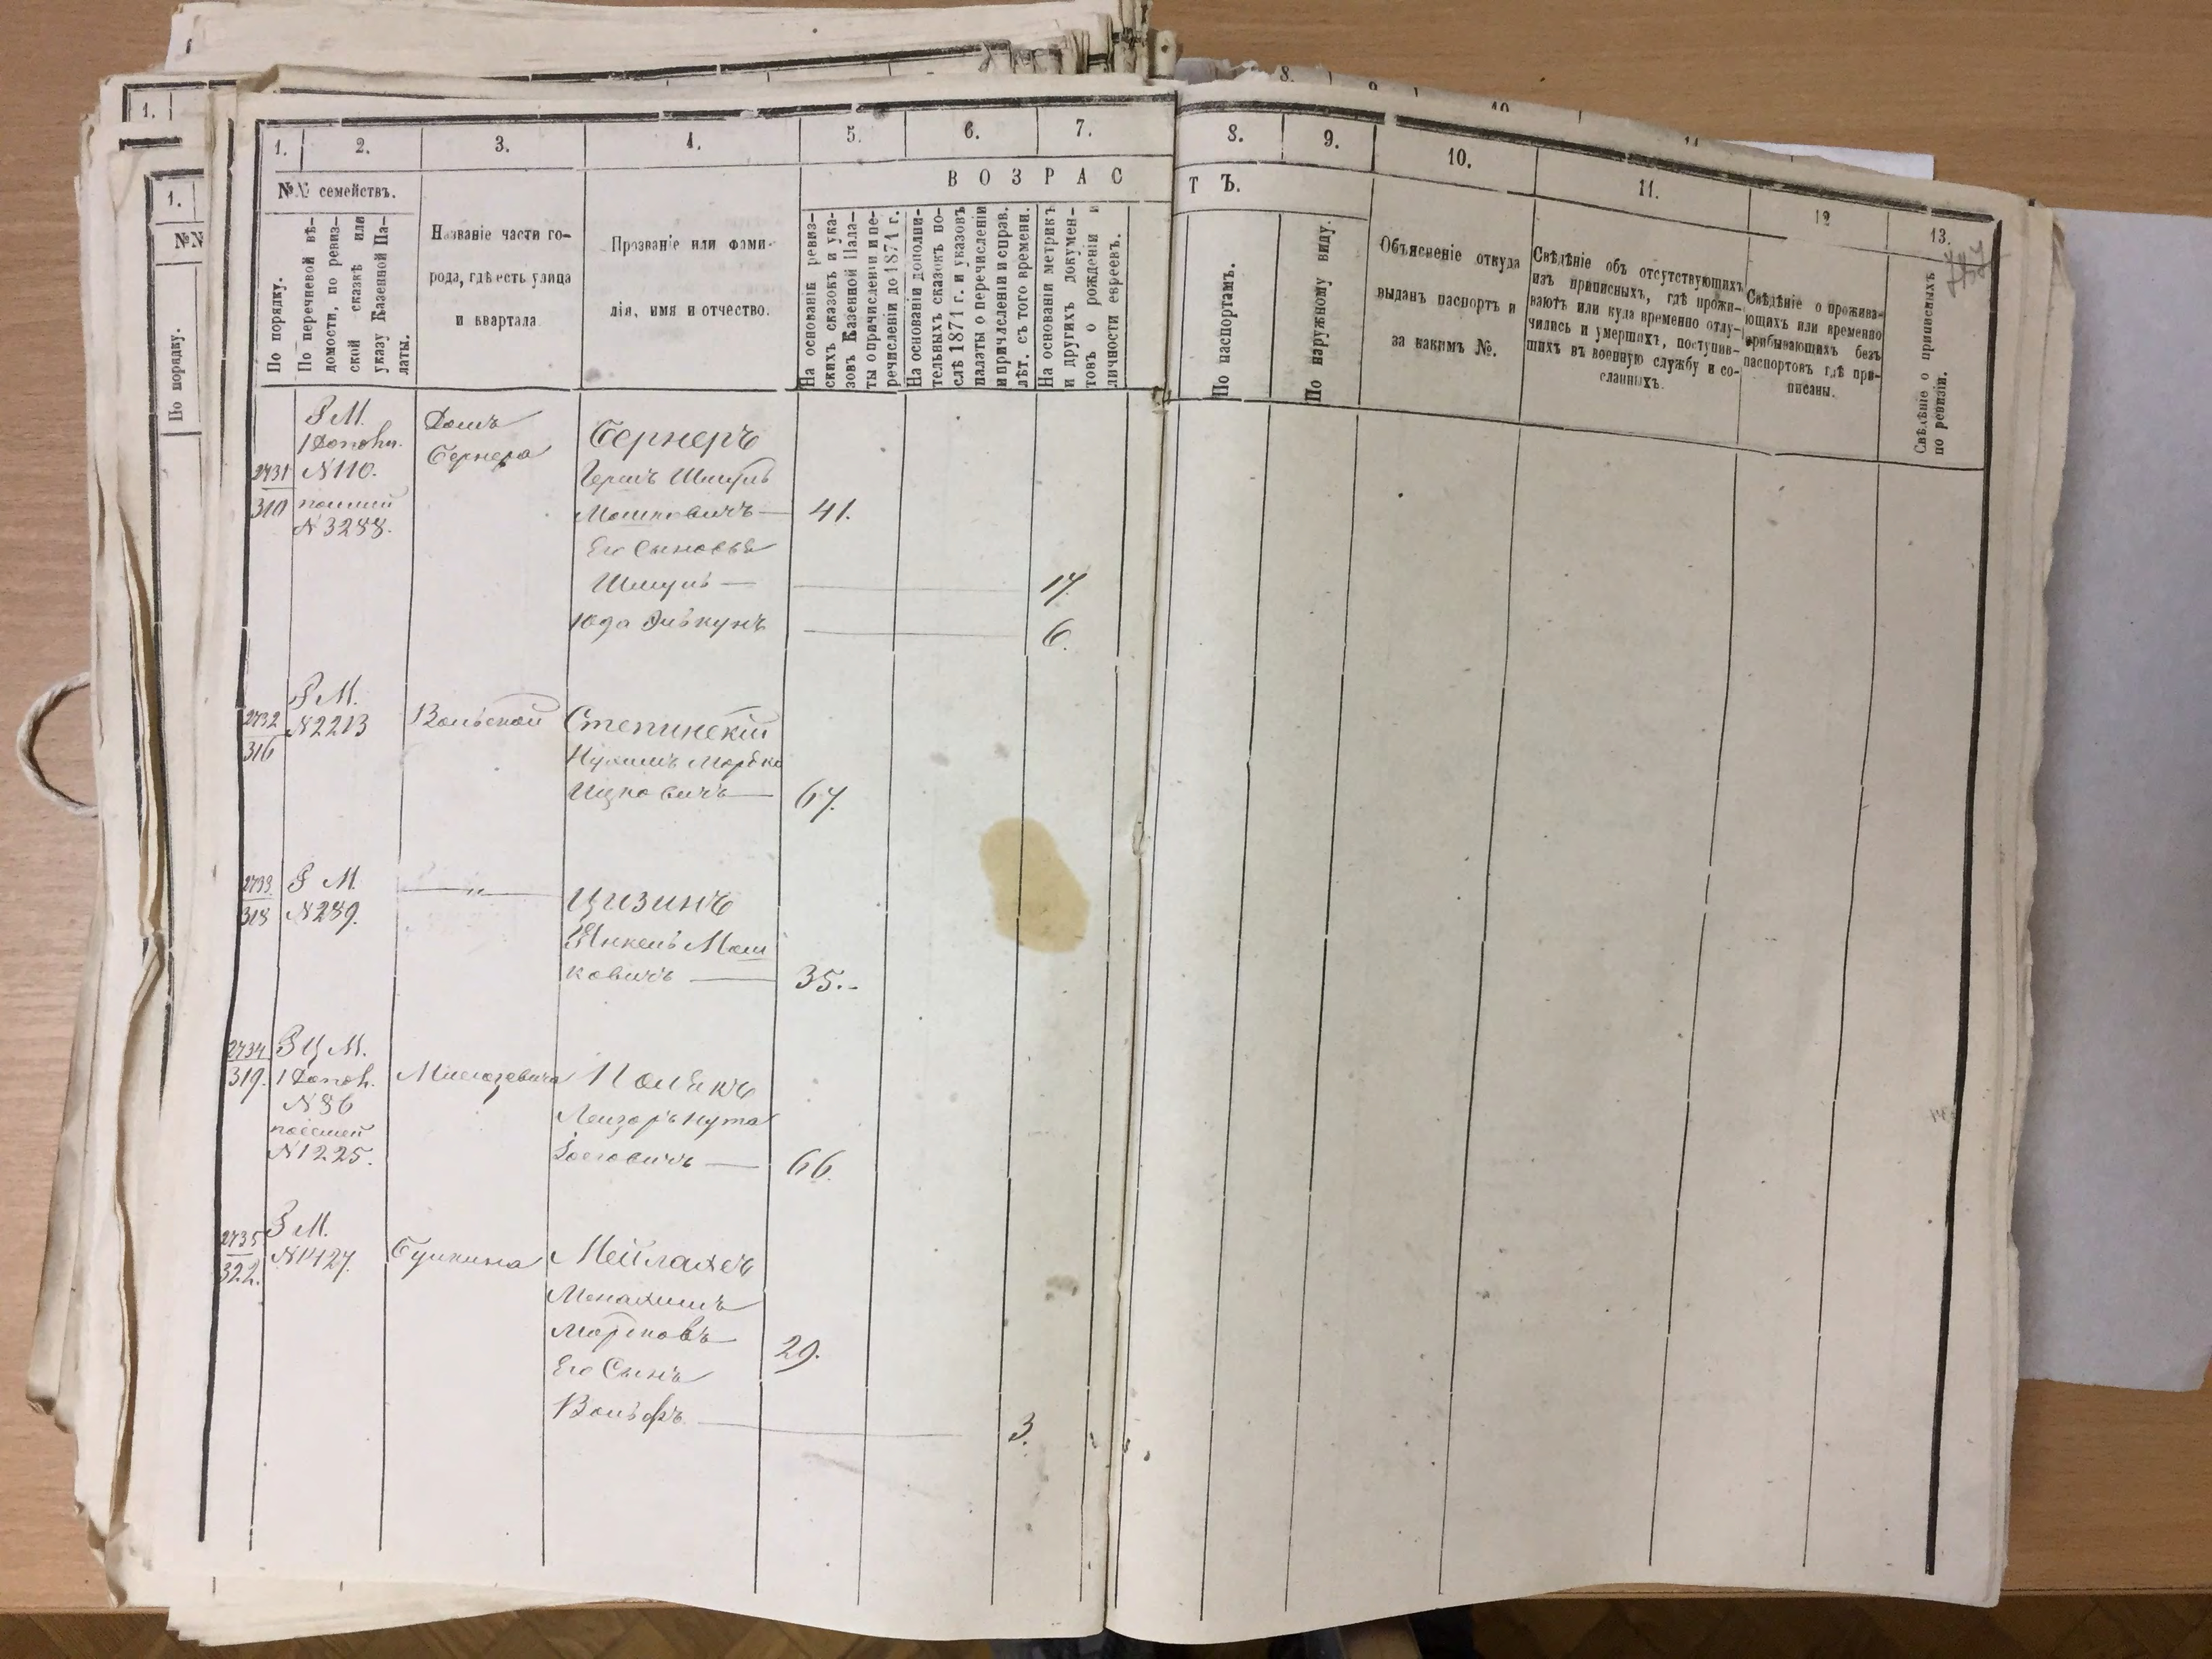 1. 2. 3. 4. 5. 6. 7. 8. 9. 10. 11. 12 13.
№№ семействъ.
По порядку.
По перечневой вѣ-
домости, по ревиз-
ской сказкѣ или
указу Казенной Па-
латы.
Названіе части го-
рода, гдѣ есть улица
и квартала
Прозваніе или фами-
лія, имя и отчество.
ВОЗРАС
ТЪ.
На основаніи ревиз-
скихъ сказокъ и ука-
зовъ Казенной Пала-
ты о причисленіи и пе-
речисленіи до 1871 г.
На основаніи дополни-
тельныхъ сказокъ по-
слѣ 1871 г. и указовъ
палаты о перечисленіи
и причисленіи и справ.
лѣт. съ того времени.
На основаніи метрикъ
и другихъ докумен-
товъ о рожденіи и
личности евреевъ.
По паспортамъ.
По наружному виду.
Объясненіе откуда
выданъ паспортъ и
за какимъ №.
Свѣдѣніе объ отсутствующихъ
изъ приписныхъ, гдѣ прожи-
ваютъ или куда временно отлу-
чились и умершихъ, поступив-
шихъ въ военную службу и со-
сланныхъ.
Свѣдѣніе о прожива-
ющихъ или временно
прибывающихъ безъ
паспортовъ гдѣ при-
писаны.
Свѣдѣніе о приписныхъ
по ревизіи.
1.
№№
По порядку.
Р М.
N110.
N3288.
2731
310
Домъ
Бернера
Бернеръ
Герцъ Шмуль
Мошковичъ — 41.
Его Сыновья
Шмуль — 17.
Юда 6.
2732
316
Р М.
N2213
Вольской
Степинскій
Нухимъ Мордко
Ицковичъ — 67.
2733.
318
Р М.
N289.
— " —
Цизинъ
Янкель Мош
ковичъ — 35.-
2734
319.
Р Ц М.
N86
N1225.
Полякъ
Лейзоръ Нута
Іосіовичъ — 66.
2735
322.
Р М.
N1427.
Мейлахъ
Менахимъ
Марковъ 29.
Его Сынъ
Вольфъ 3.